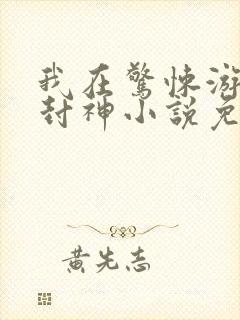 我在驚悚游
封神小說免
黃先志